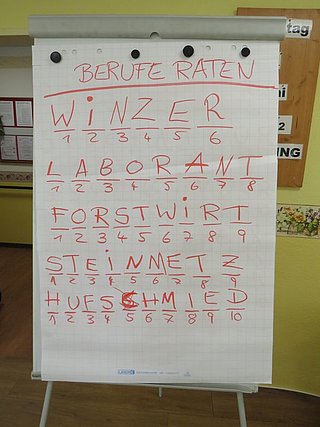 BERUFE RATEN
WiNZER
1 2 3 4 5 6
LABORANT
1 2 3 4 5 6 7 8
FORSTWiRT
1 2 3 4 5 6 7 8 9
STEiNMETZ
1 2 3 4 5 6 7 8 9
HUFSCHMIED
1 2 3 4 5 6 7 8 9 10
tag
2
NG